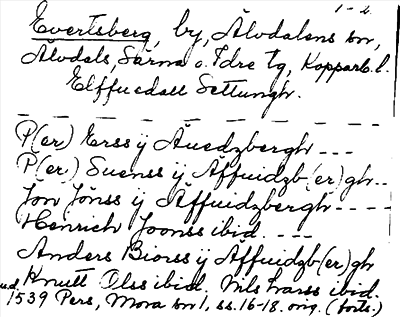 1-2.
Evertsberg, by, Älvdalens sn,
Älvdals, Särna o. Idre tg, Kopparb. l.
Elffuedall Settungh.
P(er) Erss ÿ Äuedzbergh ---
P(er.) Suenss ÿ Äffuidzb(er)gh..
Jon Jönss ÿ Äffuidzbergh ----
Henrich Joonss ibid. ----
Anders Biorss ÿ Äffuidzb(er)gh
Knutt Olss ibid. Nils Larss ibid.
1539 Pers, Mora sn 1, ss. 16-18. orig. (forts.)